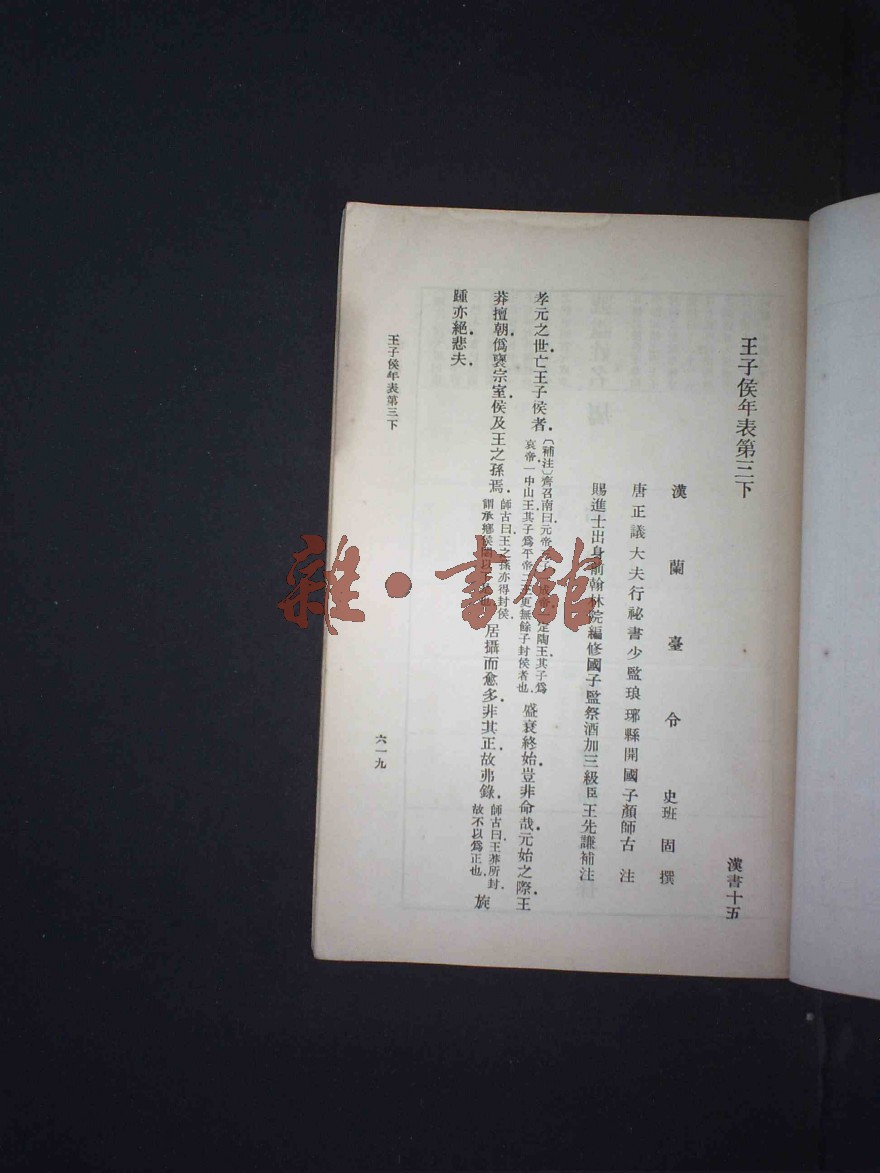 王子侯年表第三下
漢書十五
漢蘭臺令史班固撰
唐正議大夫行祕書少監琅琊縣開國子顏師古注
賜進士出身前翰林院編修國子監祭酒加三級臣王先謙補注
孝元之世亡王子侯者．〔補注〕齊召南曰元帝
定陶王其子爲
哀帝．一中山王．其子爲平帝．
更無餘子封侯者也．
盛衰終始豈非命哉．元始之際．王
莽擅朝．僞褒宗室．侯及王之孫焉．師古曰．王之孫亦得封侯．
謂承鄉侯閎以下是也．
居攝而愈多．非其正．故弗錄．師古曰．王莽所封．
故不以爲正也．
旋
踵亦絕．悲夫．
王子侯年表第三下
六一九
雜·書館